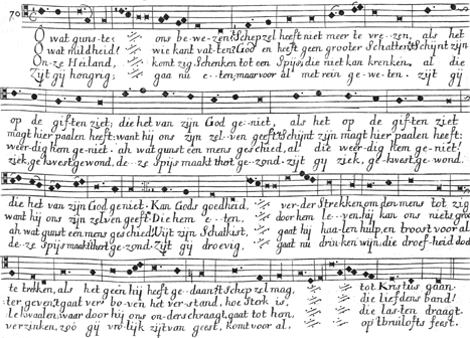 70
O wat gunste; ons be-we-zen! Schepzel heeft niet meer te vree-zen, als het
O wat mildheid! wie kant vat-ten? God en heeft geen grooter Schatten! Schijnt zijn
On-ze Heiland, komt zig Schenken tot een Spijs, die niet kan krenken, al die
Zijt gij hongrig; gaa nu e-ten, maar voor al met rein ge-we-ten. zijt gij
op de gif-ten ziet; die het van zijn God ge-niet, als het op de gif-ten ziet
magt hier paalen heeft: want hij ons zijn zel-ven geeft! Schijnt zijn magt hier paalen heeft:
weer-dig hem ge-niet. ah wat gunst een mens geschied, al die weer-dig hem ge-niet!
ziek, ge kwest gewond, de-ze Spijs maakt ge-zond. zijt gij ziek, ge-kwest ge-wond.
die het van zijn God geniet. Kan Gods goedheid, ver-der Strekken, om den mens tot zig
want hij ons zijn zelven geeft. Die hem e-ten, door hem le-ven, hij kan ons niets
ah wat gunst een mens geschied! Uit zijn Schatkist, gaat hij haa-len hulp, en troost voor al
de-ze Spijs maakt ge-zond. Zijt gij droevig, gaat nu drin-ken wijn, die droef-heid dod
te trekken, als het geen hij heeft ge-daan? Schepzel mag, tot Kristus gaan.
ter geven; gaat ver bo-ven het ver-stand, hoe Sterk is, die liefdens band!
le kwaalen; waar door hij ons on-ders-chraagt. gaat tot hon, die las-ten draagt.
verzinken, zoo gij vro-lijk zijt van geest, komt voor al, op 't bruilofts feest.